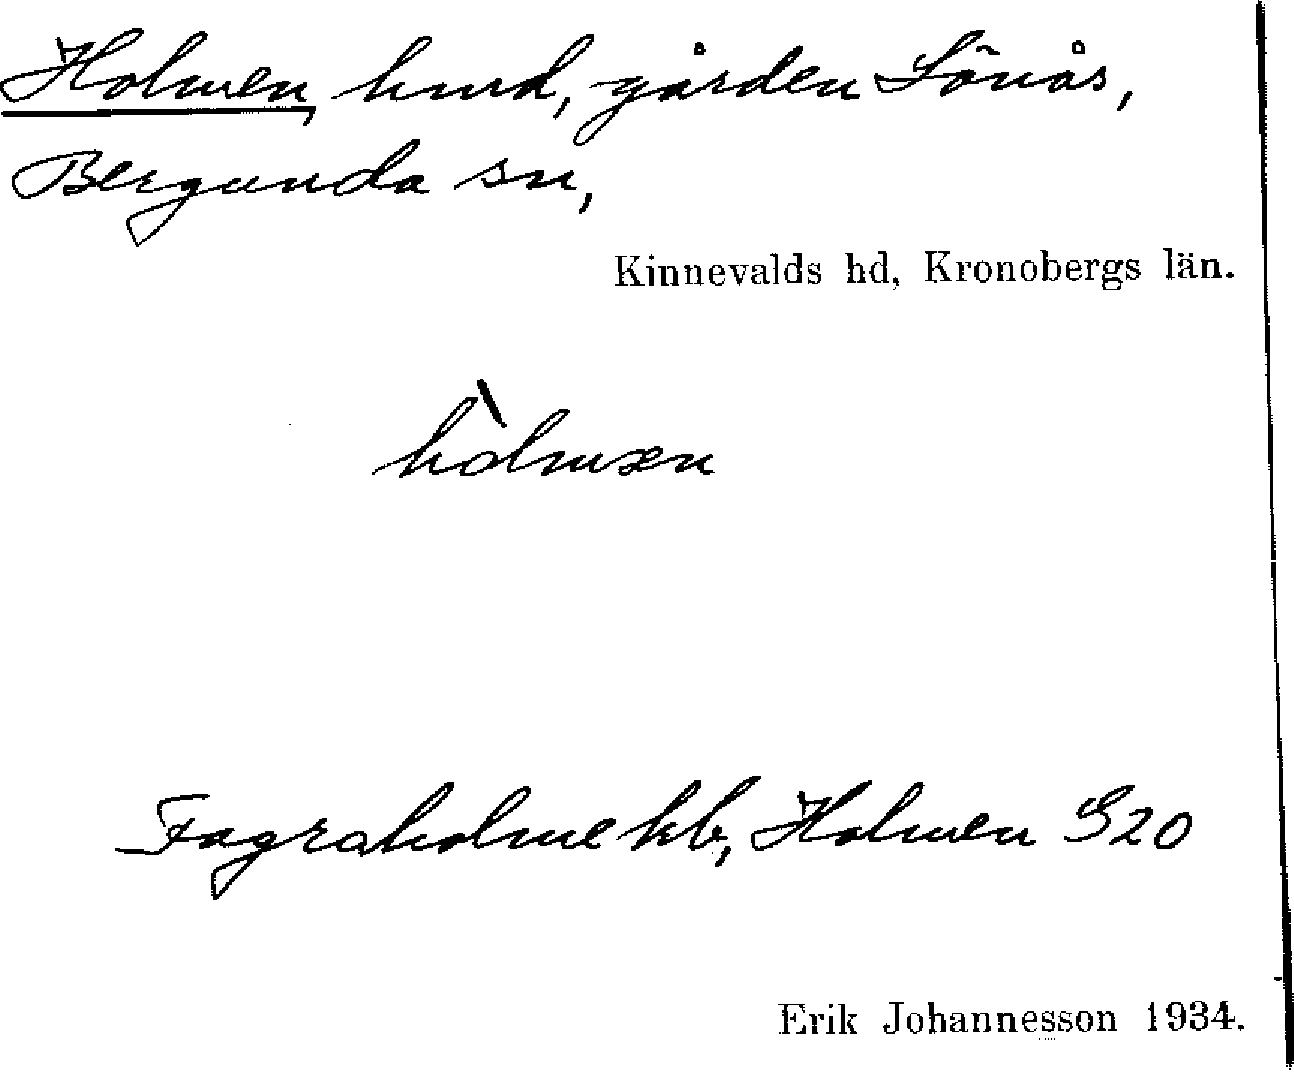 Holmen, hmd, gården Sönås,
Bergunda sn,
Kinnevalds hd, Kronobergs län.
hòlmæn
Fagraholme hb, Holmen S20
Erik Johannesson 1934.